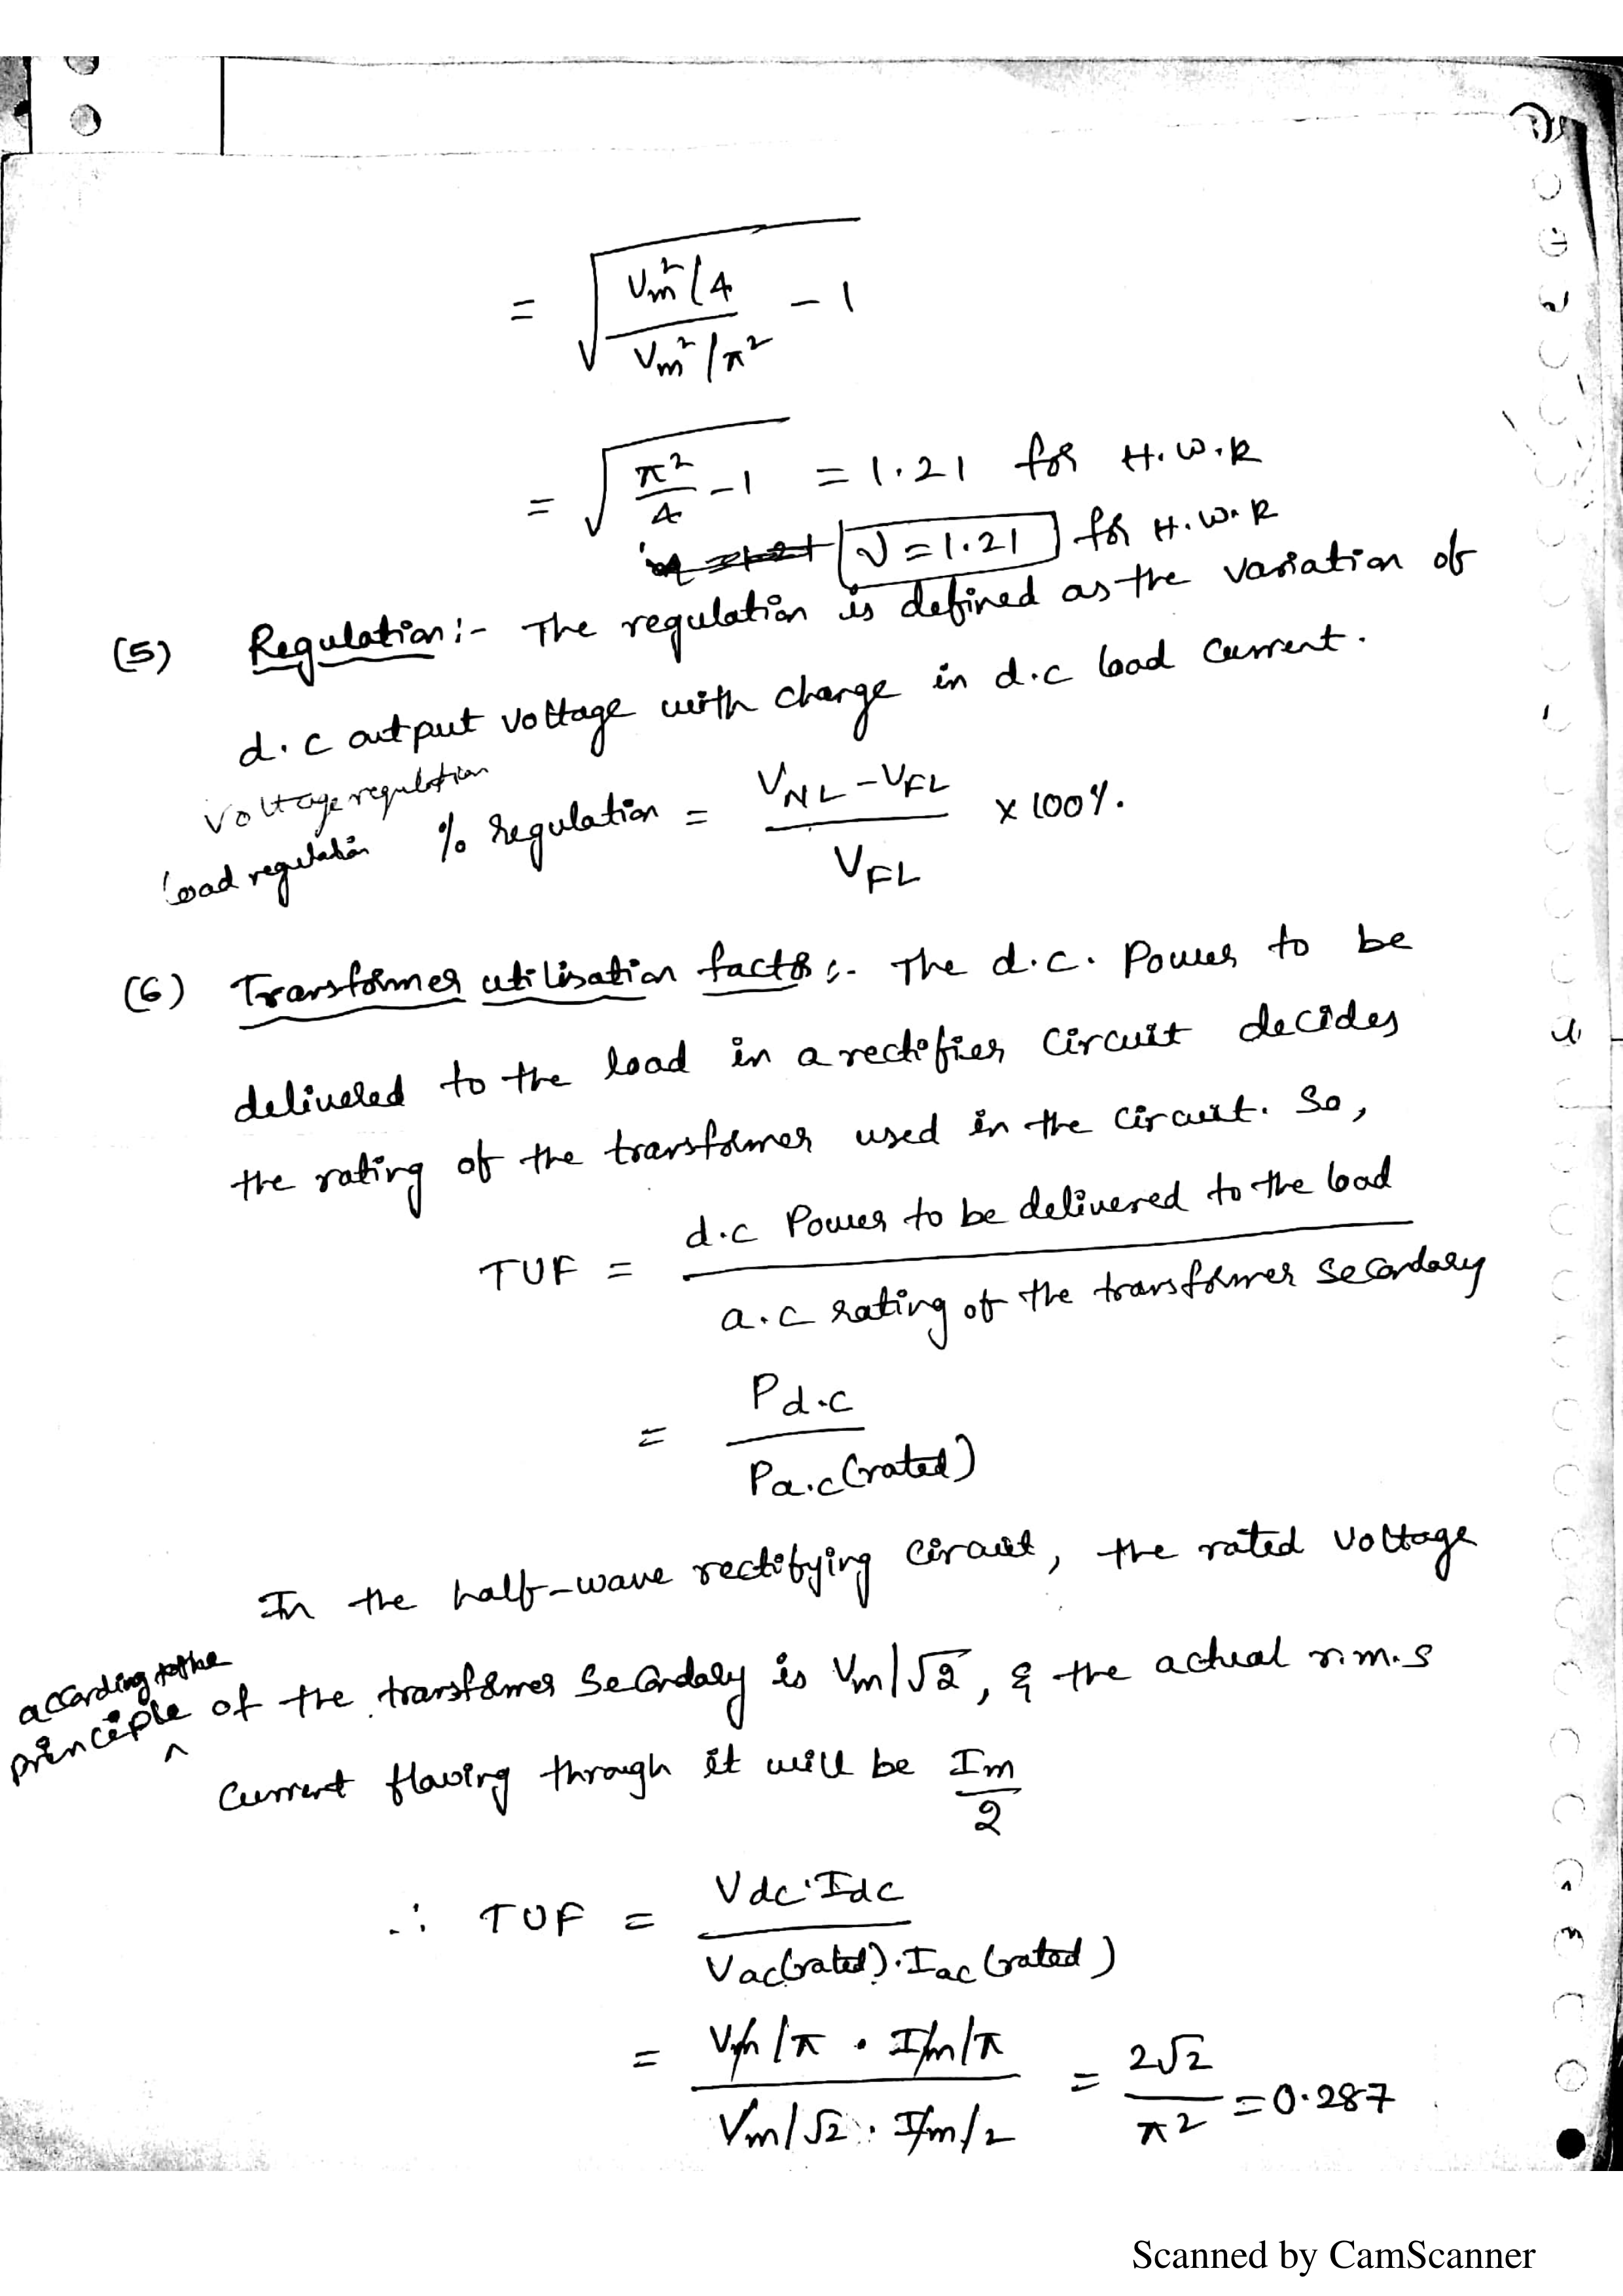 = √(Vm²/4 / Vm²/π² - 1)
= √(π²/4 - 1) = 1.21 for H.W.R
√ = 1.21 for H.W.R
(5) Regulation :- The regulation is defined as the variation of
d.c output voltage with change in d.c load current.
voltage regulation
load regulation % regulation = (VNL - VFL) / VFL × 100%.
(6) Transformer utilisation factor :- The d.c. Power to be
delivered to the load in a rectifier circuit decides
the rating of the transformer used in the circuit. So,
TUF = d.c Power to be delivered to the load / a.c rating of the transformer secondary
= Pd.c / Pa.c (rated)
In the half-wave rectifying circuit, the rated voltage
according to the
principle ^ of the transformer secondary is Vm/√2, & the actual r.m.s
current flowing through it will be Im/2
∴ TUF = Vdc.Idc / Vac(rated).Iac (rated)
= (Vm/π . Im/π) / (Vm/√2 . Im/2) = 2√2/π² = 0.287
Scanned by CamScanner